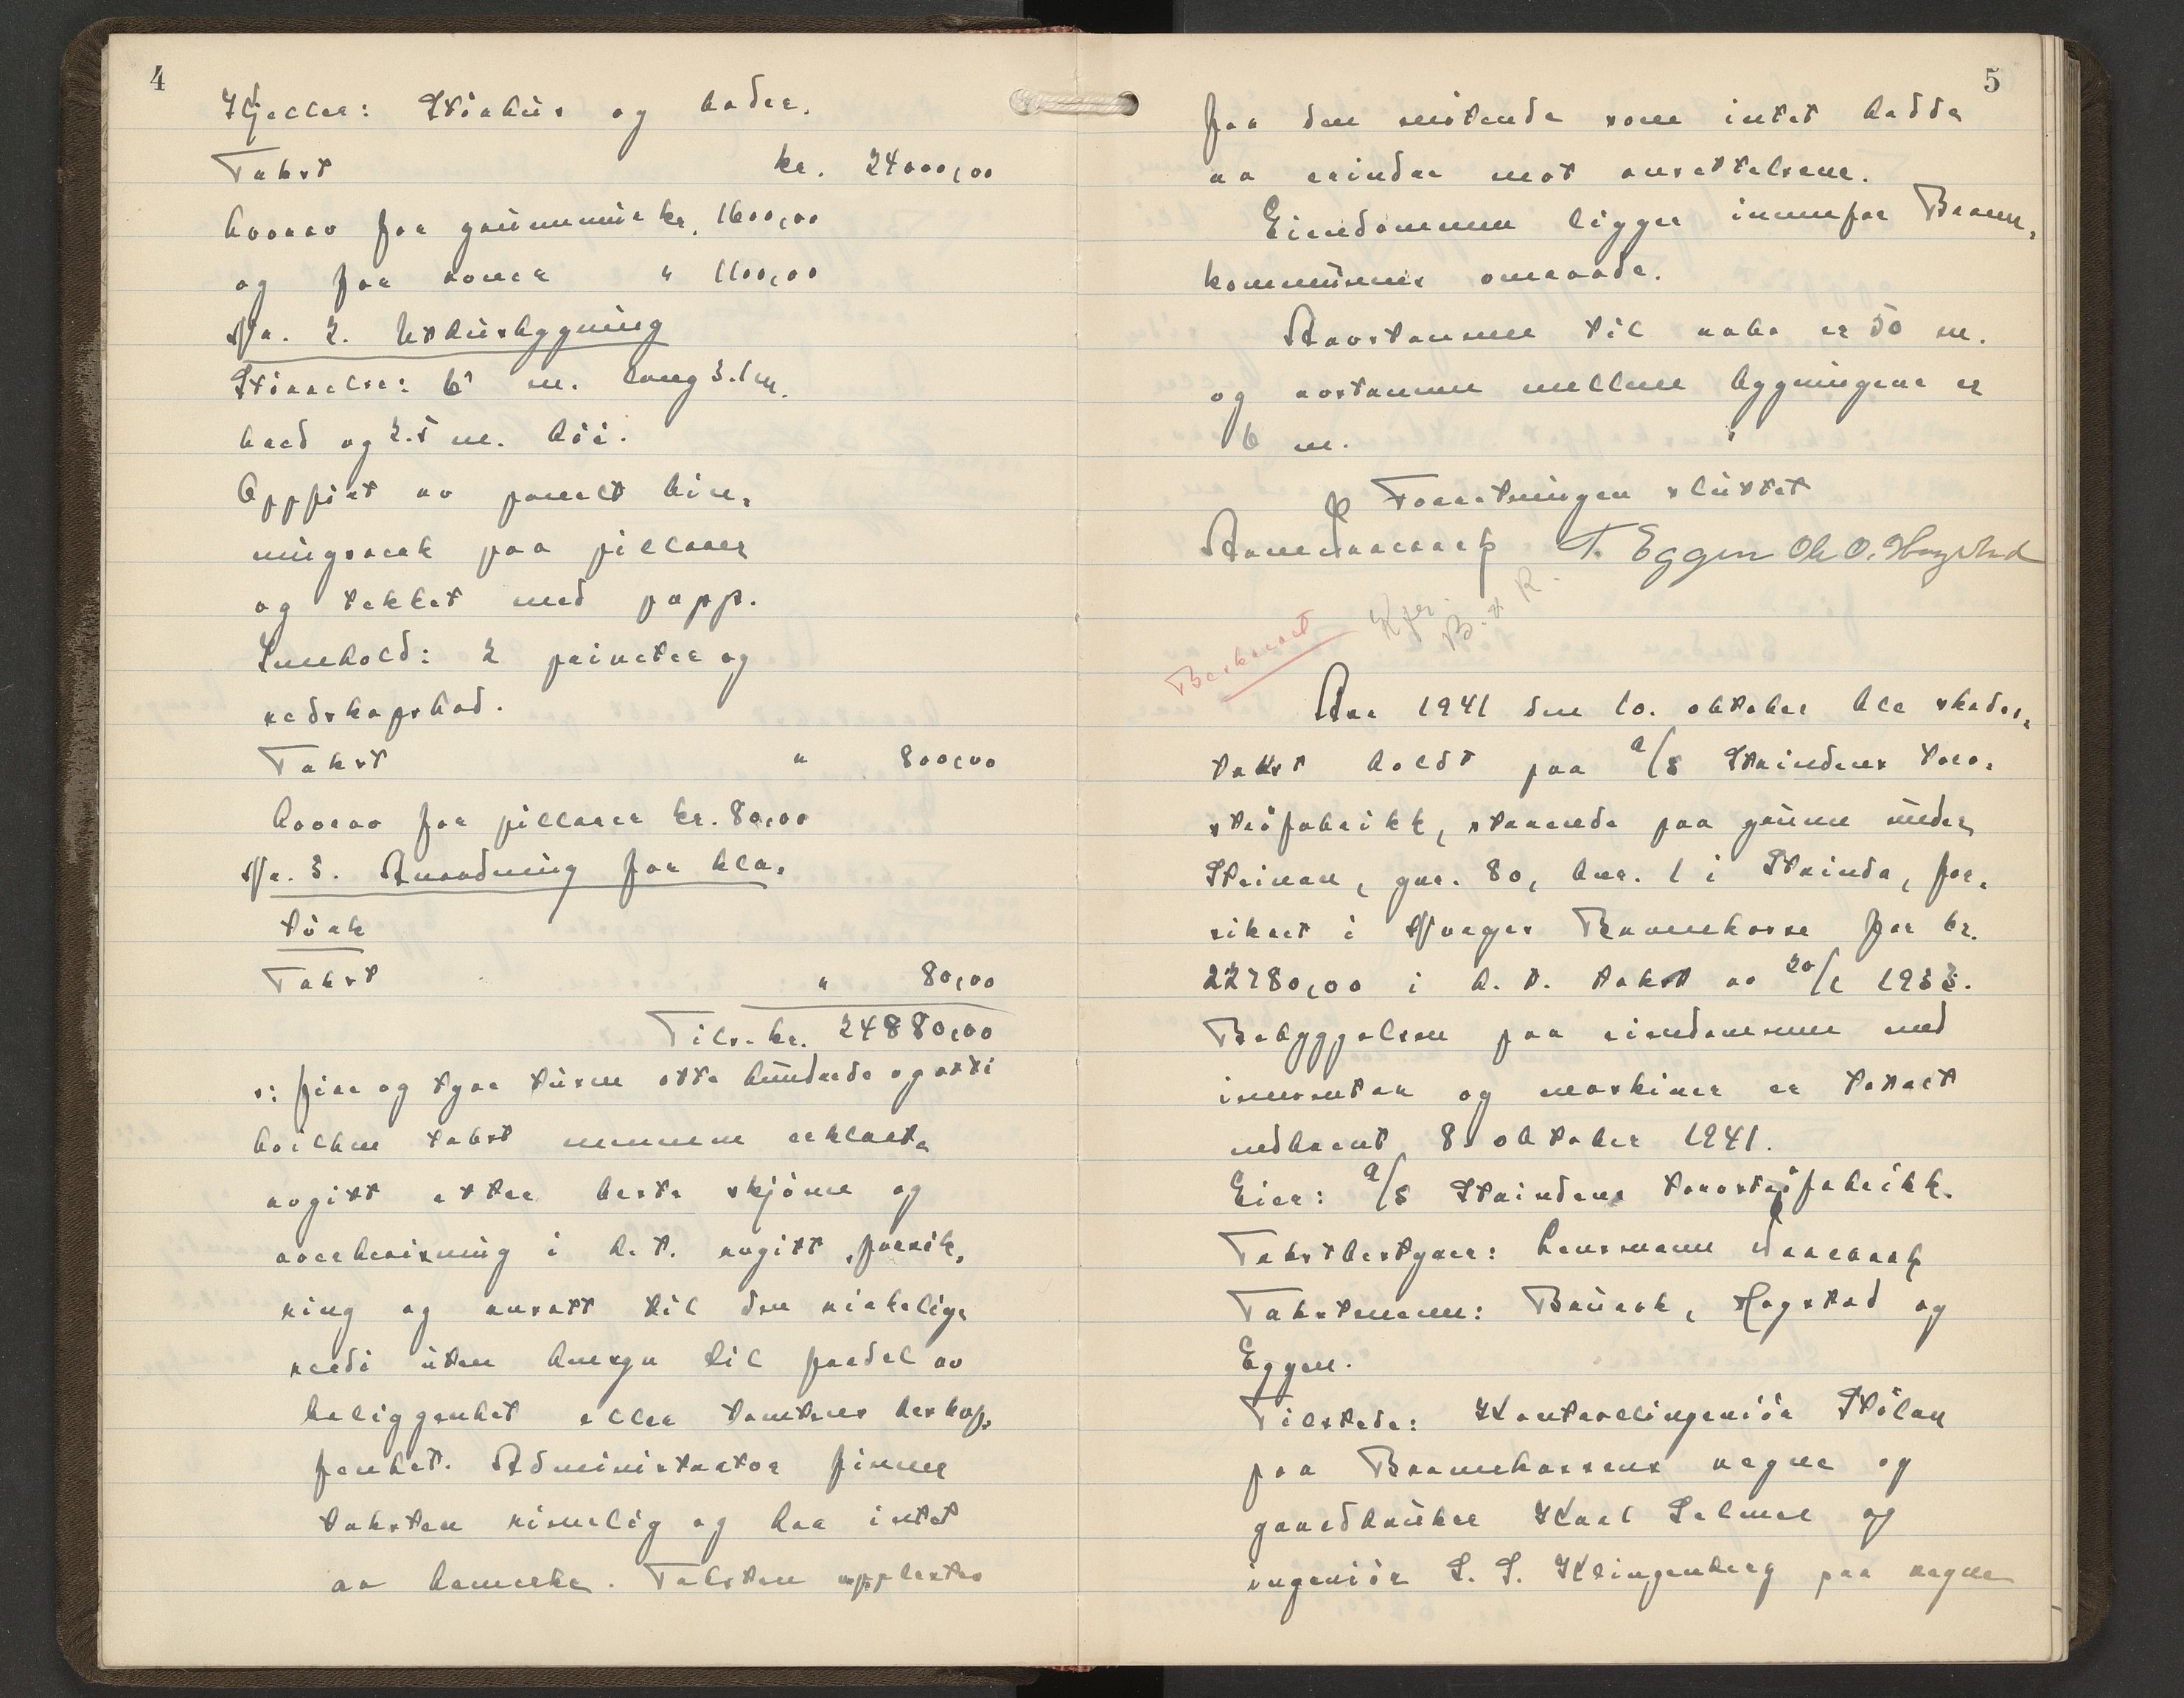 4
Kjeller: Vaskhus og boder.
Takst kr. 24000,00
hvorav for grunnmur kr. 1600,00
og for " 1100,00
Nr. 2. Uthusbygning
Størrelse: 6 m. lang 3.1 m.
bred og 2.5 m. høi.
Oppført av panelt bin,
ningsverk paa pillarer
og tekket med papp.
Innhold: 2 priveter og
redskapsbod.
Takst " 800,00
hvorav for pillarer kr. 80,00
Nr. 3. Anordning for kles,
tørk
Takst " 80,00
Tils. kr. 24880,00
s: fire og tyve tusen otte hundrede og otti
hvilken takst mennene erklærte
avgitt etter beste skjønn og
overbevisning i h. t. avgitt forsik,
ring og ansatt til den virkelige
verdi uten hensyn til fordel av
beliggenhet eller tomtens beskaf,
fenhet. Administrator finner
taksten rimelig og har intet
aa bemerke. Taksten opplestes
5
for den møtende som intet hadde
aa erindre mot ansettelsene.
Eiendommen ligger innenfor Brann,
kommunens omraade.
Avstannen til nabo er 50 m.
og avstannen mellem bygningene er
6 m.
Forretningen sluttet
T. Eggen Ole O. Hagstad
Beskrevet
B. & R.
Aar 1941 den 10. oktober ble skades,
takst holdt paa a/s Strindens torv,
strøfabrikk, staaende paa grunn under
Steinan, gnr. 80, bnr. 1 i Strinda, for,
sikret i Norges Brannkasse for kr.
22780,00 i h. t. takst av 20/1 1933.
Bebyggelsen paa eiendommen med
inventar og maskiner er totalt
nedbrent 8. oktober 1941.
Eier: a/s Strindens torvstrøfabrikk.
Takstbestyrer: Lensmann
Takstmenn: Brurok, Hagstad og
Eggen.
Tilstede: Kontrollingeniør Stølan
paa Brannkassens vegne og
gaardbruker Karl Selmer og
ingeniør S. S. Klingenberg paa vegne